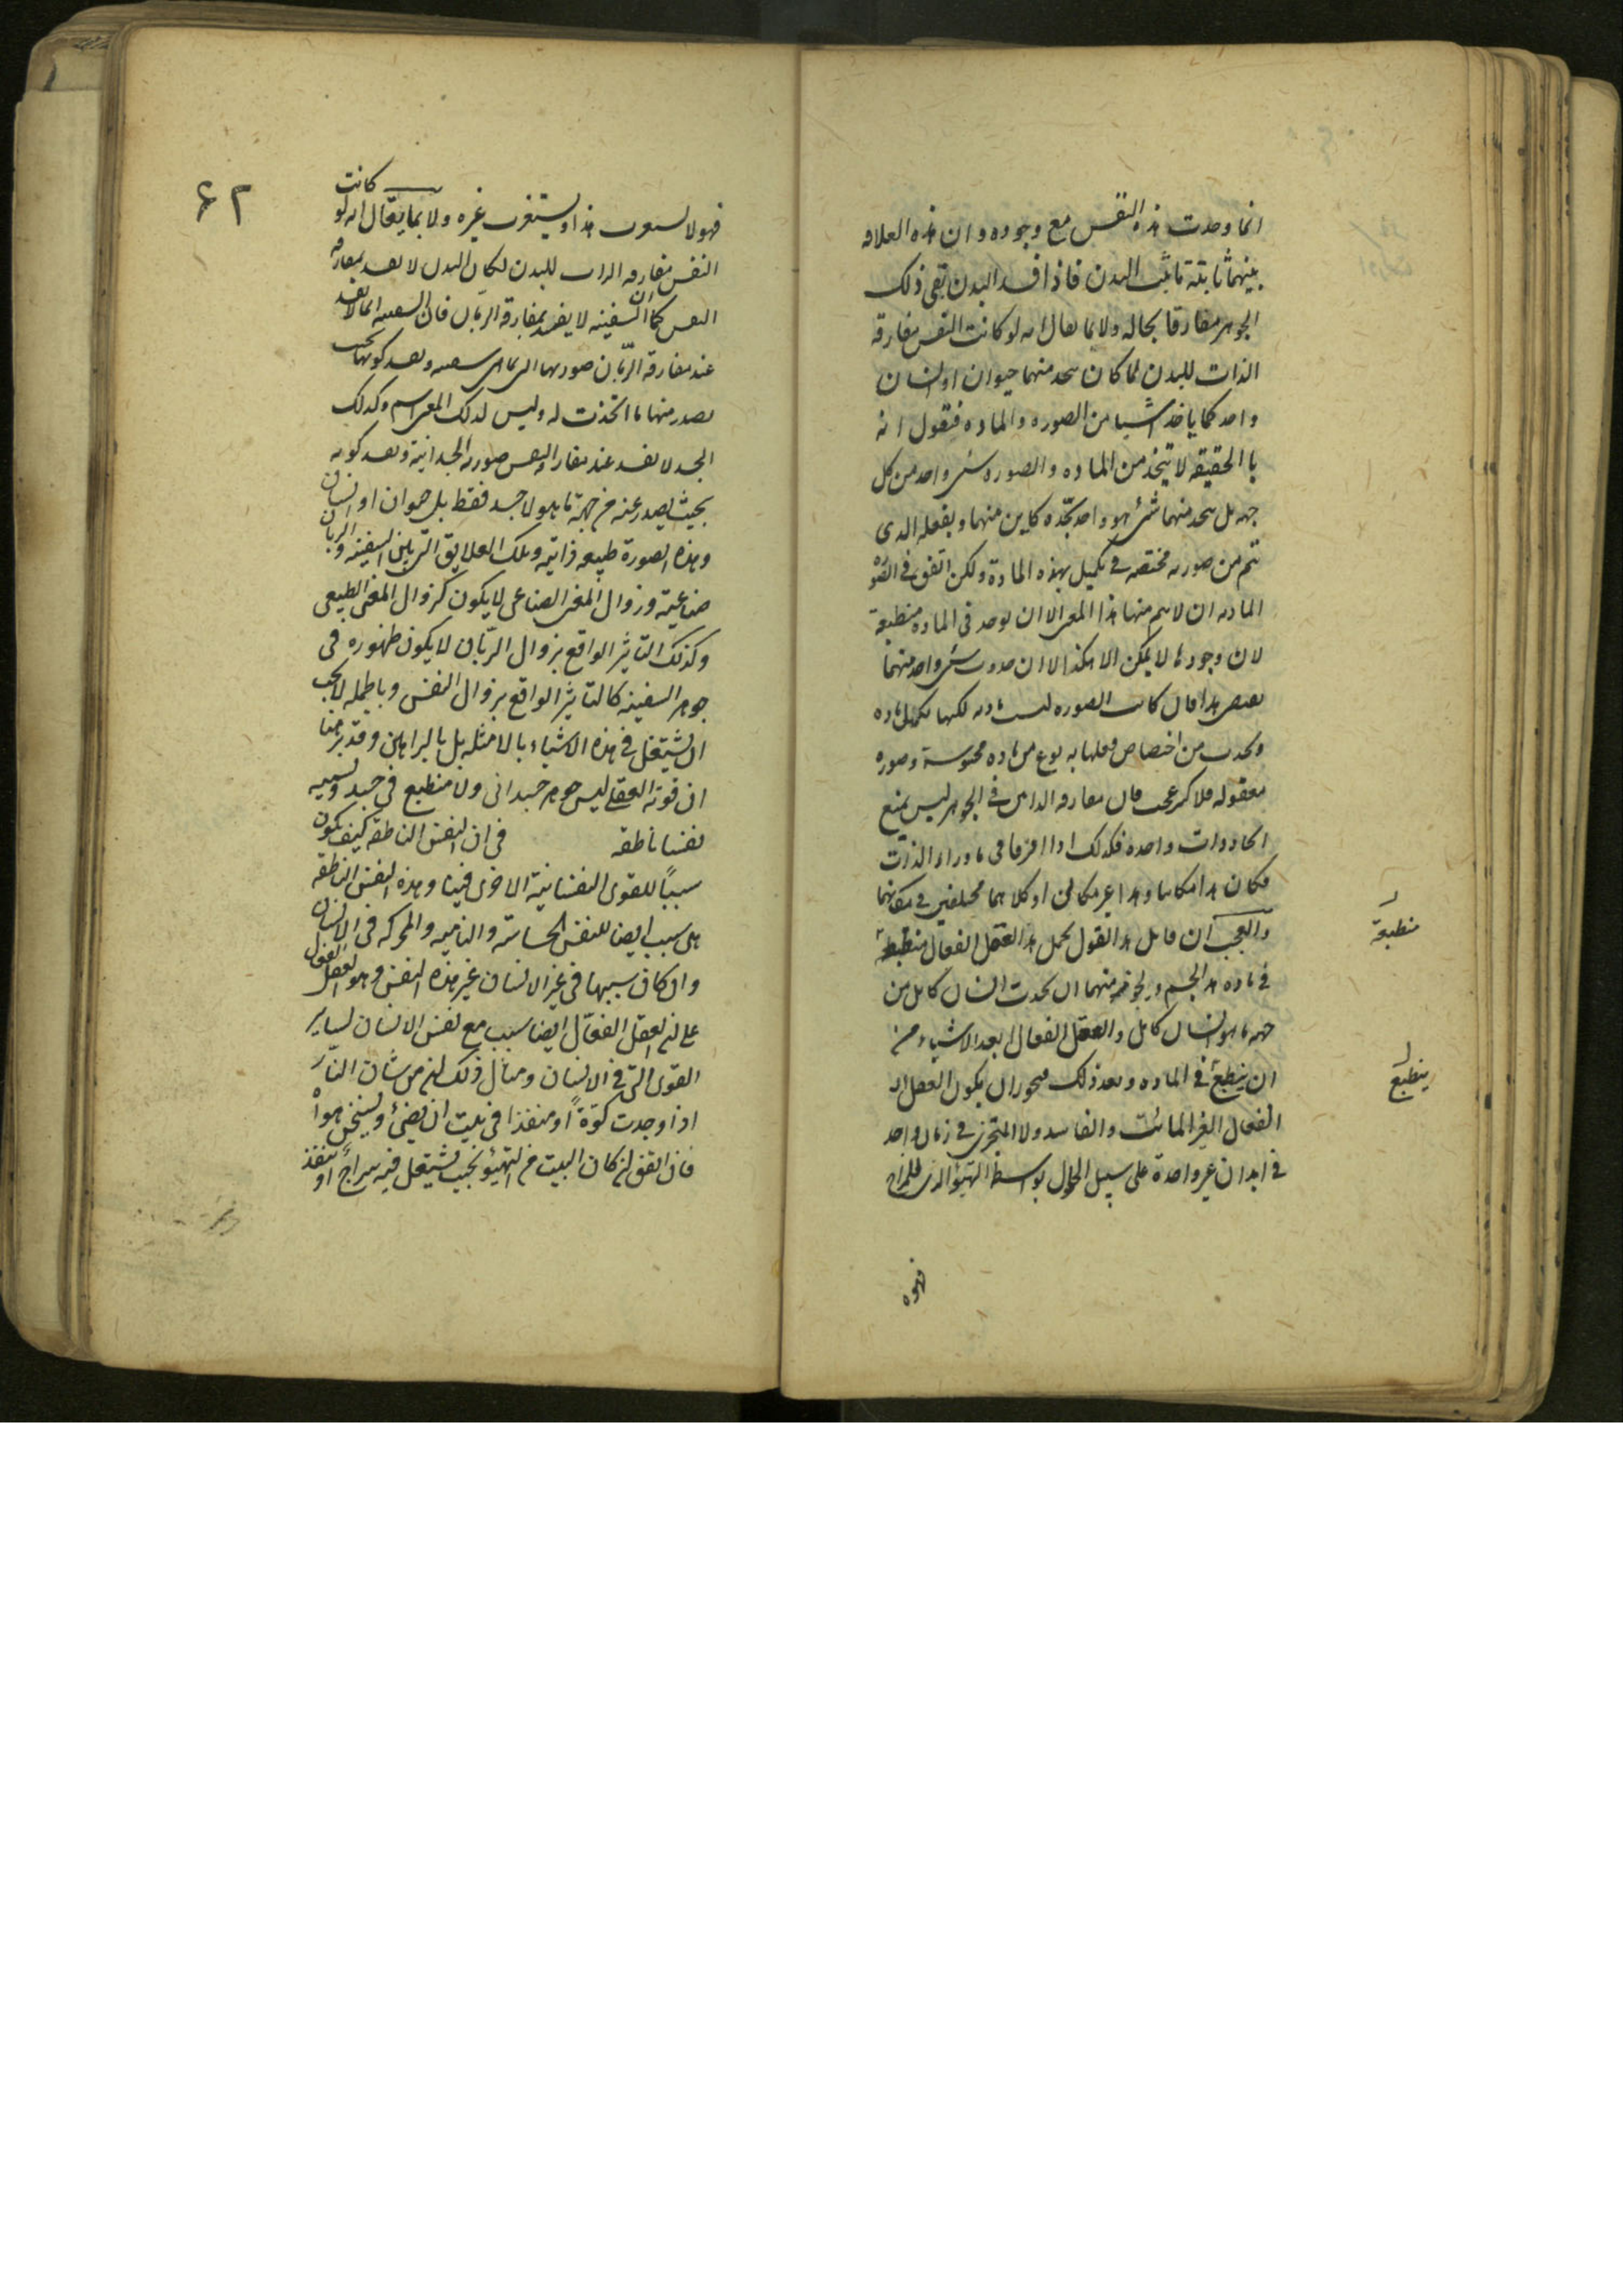 انما وحدت هذه النفس مع وجوده وان هذه العلاقه
بينهما ثابتة ما ثبت البدن فاذا فسد البدن بقى ذلك
الجوهر مفارقا بحاله ولا بما يقال انه لو كانت النفس مفارقه
الذات للبدن لما كان يتحد منهما حيوان او انسان
واحد كما ياخذ شيا من الصوره والماده فنقول انه
بالحقيقه لا يتخذ من الماده والصوره شى واحد من كل
جهه بل يتحد منهما شئ هو واحد بحده كاين منهما وبفعله الدى
تتم من صورته مختصه فى تكميل بهذه المادة ولكن اتفق فى الصوره
الماديه ان لا يتم منها هذا المعنى الا ان يوجد فى الماده منطبعة
لان وجودها لا يمكن الا هكذا لا ان حدوث شى واحد منهما
يقتضى هذا فان كانت الصوره ليست ماديه لكنها مكمله ماده
ويحدث من اختصاص فعلها به نوع من ماده محسوسة وصوره
معقوله فلا كثير عجب فان مفارقه الذاتين فى الجوهر ليس يمنع
اتحاد ذوات واحده فكذلك اذا افترقا فى ما وراء الذات
فكان هذا مكانيا وهذا غير مكانى او كلاهما مختلفين فى مكانهما
والعجب ان قايل هذا القول يجعل هذا العقل الفعال منطبعة
فى ماده هذا الجسم ويجوز منهما ان يحدث انسان كامل من
جهه ما هو انسان كامل والعقل الفعال ابعد الاشياء من
ان ينطبع فى الماده وبعد ذلك فيجوز ان يكون العقل
الفعال الغير المائت والفاسد ولا المتجزى فى زمان واحد
فى ابدان غير واحدة على سبيل الحلول بواسطة التهيؤ الذى للمزاج
منطبعة
ينطبع
فهو لا
٦٢
فهو لا هذا ويستغرب غيره ولا بما يقال انه لو كانت
النفس مفارقه الذات للبدن لكان البدن لا يفسد بمفارقه
النفس كما ان السفينه لا يفسد بمفارقة الربان فان السفينه انما لا تفسد
عند مفارقة الربّان صورتها التى بها هى سفينه وبعد كونها بحيث
يصدر منها ما اتخذت له وليس لذلك المعنى اسم وكذلك
الجسد لا يفسد عند مفارقة النفس صورته الجسدانية وبعد كونه
بحيث يصدر عنه من جهة ما هو لا جسد فقط بل حيوان او انسان
وهذه الصورة طبيعه ذاتيه وتلك العلايق التى بين السفينه والربان
صناعيّة وزوال المعنى الصناعى لا يكون كزوال المعنى الطبيعى
وكذلك التاثير الواقع بزوال الربّان لا يكون ظهوره فى
جوهر السفينه كالتاثير الواقع بزوال النفس وبالجمله لا يجب
ان يشتغل فى هذه الاشياء بالامثله بل بالبراهين وقد برهنا
ان قوته العقلى ليس جوهر جسدانى ولا منطبع فى جسد ونسميه
نفسا ناطقه فى ان النفس الناطقه كيف تكون
سببًا للقوى النفسانية الاخرى فينا وهذه النفس الناطقه
هى سبب ايضا للنفس الحساسّة والناميه والمحركه فى الانسان
وان كان سببها فى غير الانسان غير هذه النفس وهو العقل الفعال
على ان العقل الفعّال ايضا سبب مع نفس الانسان لساير
القوى التى فى الانسان ومثال ذلك ان من شان النار
اذا وجدت كوّةً او منفذا فى بيت ان يضئ ويسخن هواه
فان اتفق ان كان البيت من التهيؤ بحيث يشتعل فيه سراجٌ او تنفذ